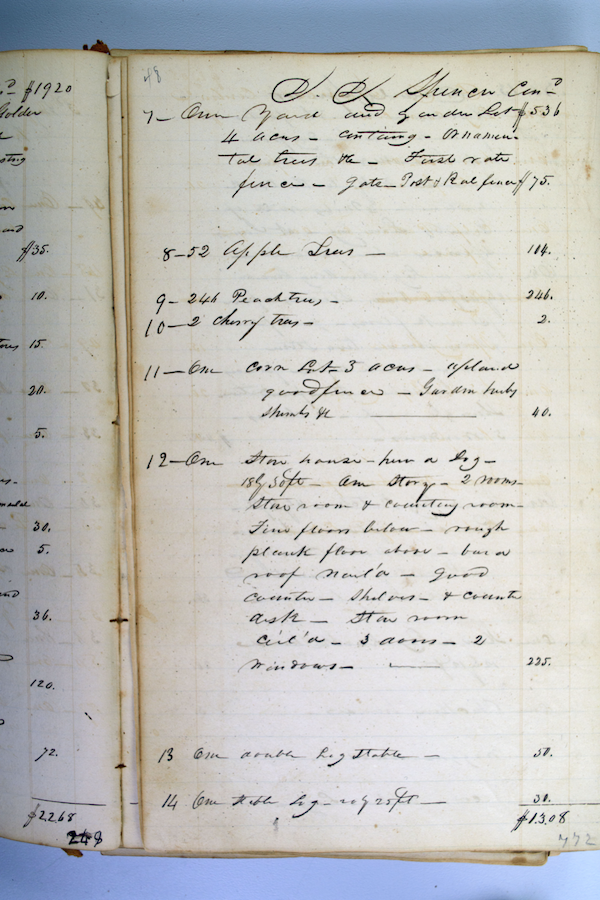 $1920
$35.
10.
15.
20.
5.
30.
5.
36.
120.
72.
$2268
248
48
Spencer Con-d
7- One Yard and Garden Lot $536
4 acres - containg - Ornamen-
tal trees &c - First rate
fence - gate - Post & Rail fence $75.
8-52 Apple Trees - 104.
9- 246 Peach trees - 246.
10-2 Cherry trees - 2.
11-One corn Lot- 3 acres - upland
good fence - Garden herbs
shrubs &c 40.
12-One Store house - hewd Log -
18 by 30 ft - One Story - 2 rooms
Store room & counting room -
floors below - rough
plank floor above - board
roof nail'd - good
counter - Shelves - & counter
desk - Store room
Ceil'd - 3 doors - 2
windows - 225.
13 One double Log Stable - 50.
14 One Stable Log - 20 by 25 ft - 30.
$1308
772